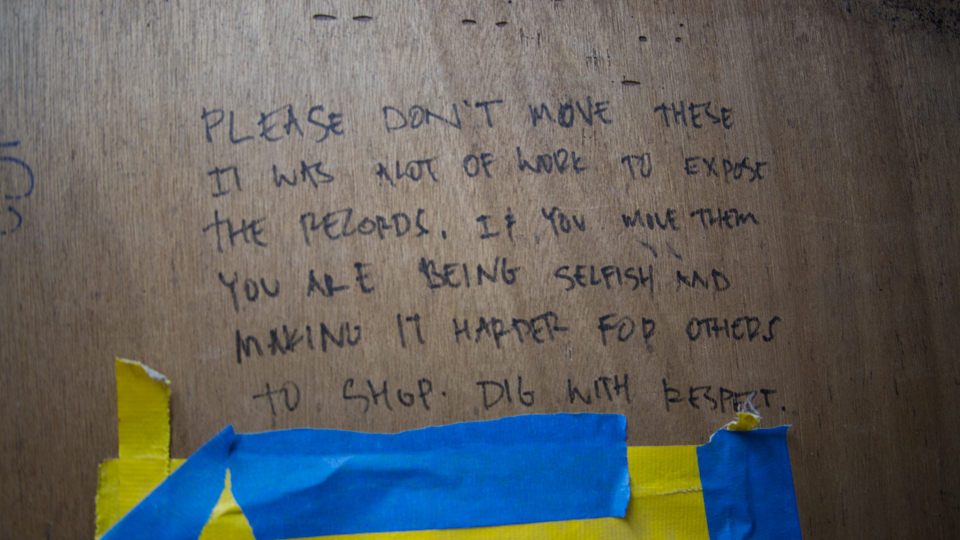 PLEASE DON'T MOVE THESE
IT WAS ALOT OF WORK TO EXPOSE
THE RECORDS. IF YOU MOVE THEM
YOU ARE BEING SELFISH AND
MAKING IT HARDER FOR OTHERS
TO SHOP. DIG WITH RESPECT.